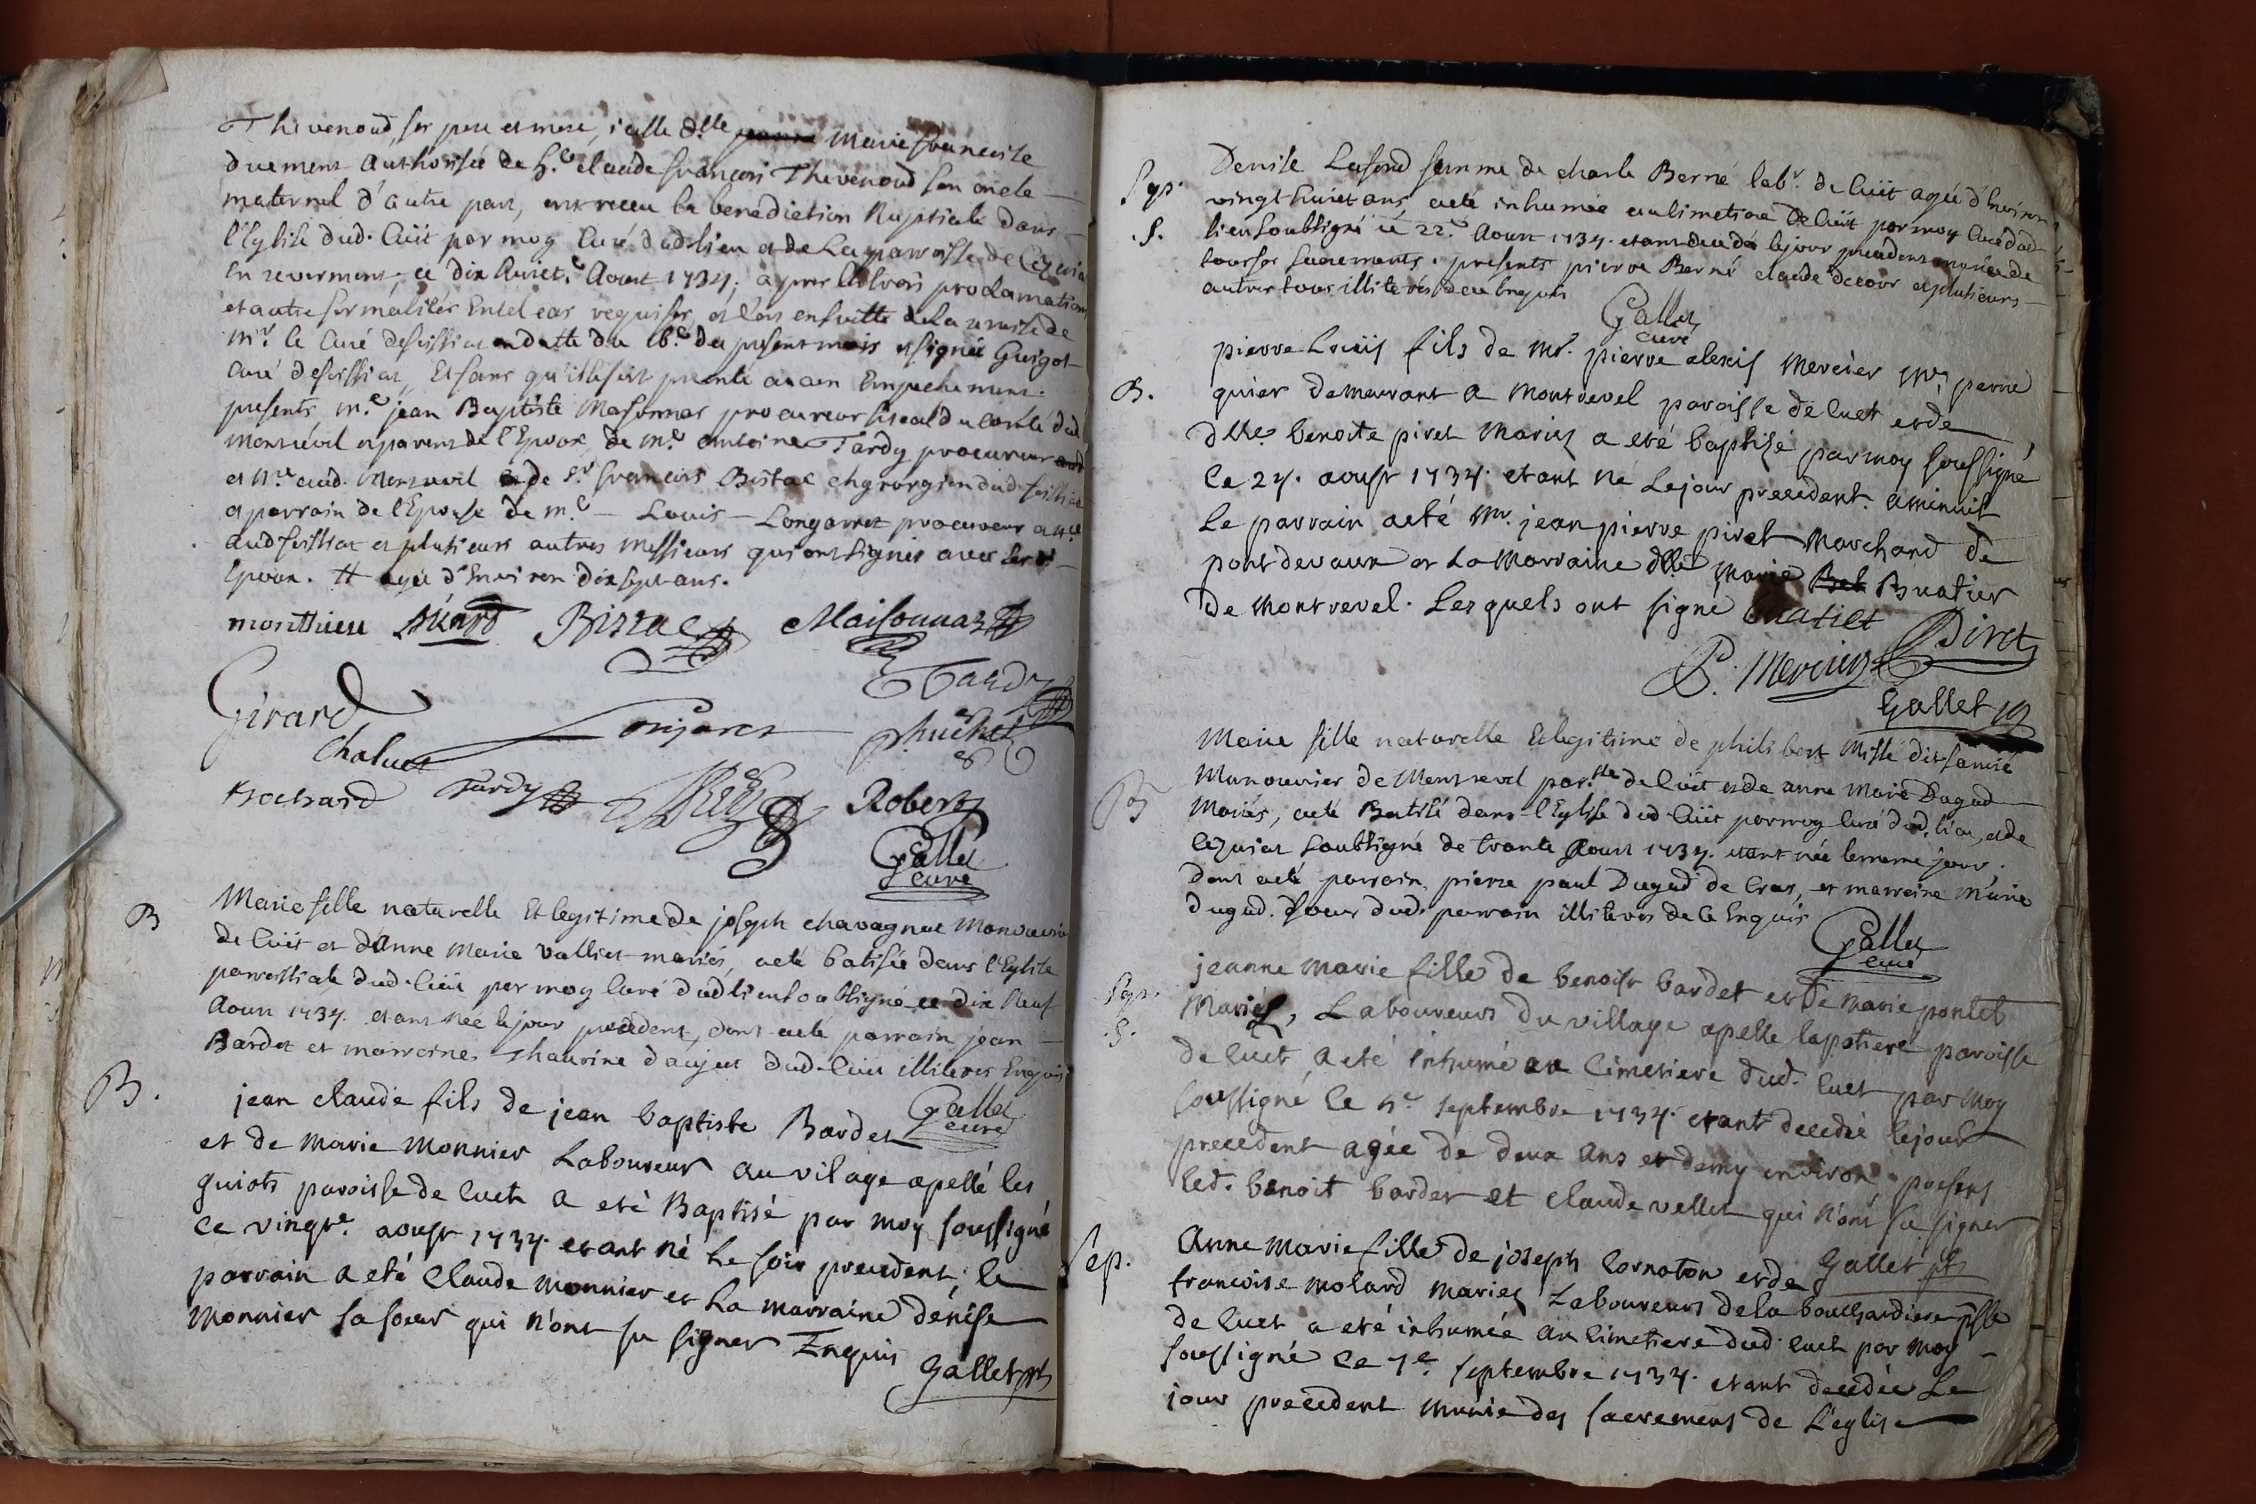 Thevenoud, ses pere et mere, icelle d.lle Marie francoise
duement authorisée de S.r claude francois Thevenoud son oncle
maternel d'autre part, ont receu la benediction Nuptiale dans
l'Eglise dud. Cüet par moy Curé dud. lieu et de La paroisse de
En revermont, ce dix huict.e Aout 1734, apres les trois proclamations
et autre formalités En tel cas requises, et lors ensuitte de la remise de
m.r le Curé de foissiat en datte du du present mois et signée Guigot
Curé de foissiat, Et sans qu'il se soit presenté aucun Empechement.
presents m.e jean Baptiste Masonnas procureur fiscal du comté dud.
Montrevel et parent de l'Epoux, de m.e antoine Tardy procureur
et N.re aud. Montrevel et de S.r francois Bistac chyrorgien dud. foissiat
et parrain de l'Epouse de m.e Louis Longarret procureur
aud foissiat et plusieurs autres Messieurs qui ont signés avec les
Epoux. # agée d'Environ dix sept ans.
monthieu Bizzac Maisonnas
Tardy
Girard Lonjarret
Chaluet
Bochard Tardy Robert
Gallet
curé
B
Marie fille naturelle Et legitime de joseph chavagnat Manouvrier
de Cüet et d'Anne Marie Vallict mariés, a eté batisée dans l'Eglise
paroissiale dud. Cüet par moy Curé dud lieu soubsigné ce dix Neuf
Aoust 1734. etant Née le jour precedent, dont a eté parrain jean
Bardet et marreine dud. Cüet illiteres Enquis
B.
Gallet
curé
jean claude fils de jean baptiste Bardet
et de marie Monnier Laboureur au vilage apellé les
guiots paroisse de Cuet a eté Baptisé par moy soussigné
le vingt.e aoust 1734. etant né Le soir precedent, le
parrain a eté Claude monnier et La marraine denise
Monnier sa soeur qui n'ont su signer Enquis
Gallet
Sep.
.S.
Denise Lafond femme de charle Berné lab.r de Cüit agée d'Environ
vingt huict ans, a eté inhumée au Cimetiere de Cüet par moy Curé dud
lieu soubsigné ce 22.e Aoust 1734. etant decedée le jour precedent munie de
tous ses sacrements. presents pierre Berné claude decour et plusieurs
autres tous illiterés de ce Enquis
Gallet
curé
B.
pierre Loüis fils de Mr. pierre alexis Mercier M.e perru
quier demeurant a Montrevel paroisse de Cuet et de
dlle benoite piret Mariez a eté baptisé par moy soussigné
le 24. aoust 1734. etant né Le jour precedent a minuit
Le parrain a eté Mr. jean pierre piret Marchand de
pont de vaux et La Marraine dlle Marie Buatier
de Montrevel. Lesquels ont signé Buatier
Piret
P. Mercier
Gallet
B
Marie fille naturelle Et legitime de philibert Mille dit
Manouvrier de Montrevel par.sse de Cüit et de anne Marie Dugad
Mariés, a eté Batisé dans l'Eglise dud. Cüit par moy Curé dud. lieu, et de
soubsigné ce trante Aoust 1734. etant née le meme jour.
dont a eté parrain pierre paul Dugad de Cras, et marreine Marie
dugad. soeur dud. parrain illiteres de ce Enquis
Gallet
curé
Sep.
.S.
jeanne marie fille de benoist bardet et de Marie pontet
Mariés, Laboureurs du village apelle la potiere paroisse
de Cuet, a eté inhumé au Cimetiere dud. Cuet par moy
soussigné le septembre 1734. etant decedée le jour
precedent agée de deux ans et demy environ presens
led. benoit bardet et Claude vellet qui n'ont su signer
Gallet
Sep.
Anne Marie fille de joseph Cornaton et de
francoise Molard Mariez Laboureurs de la bouchardiere
de Cuet a eté inhumée au Cimetiere dud. Cuet par moy
soussigné le 7.e septembre 1734. etant decedée Le
jour precedent munie des sacremens de L'eglise